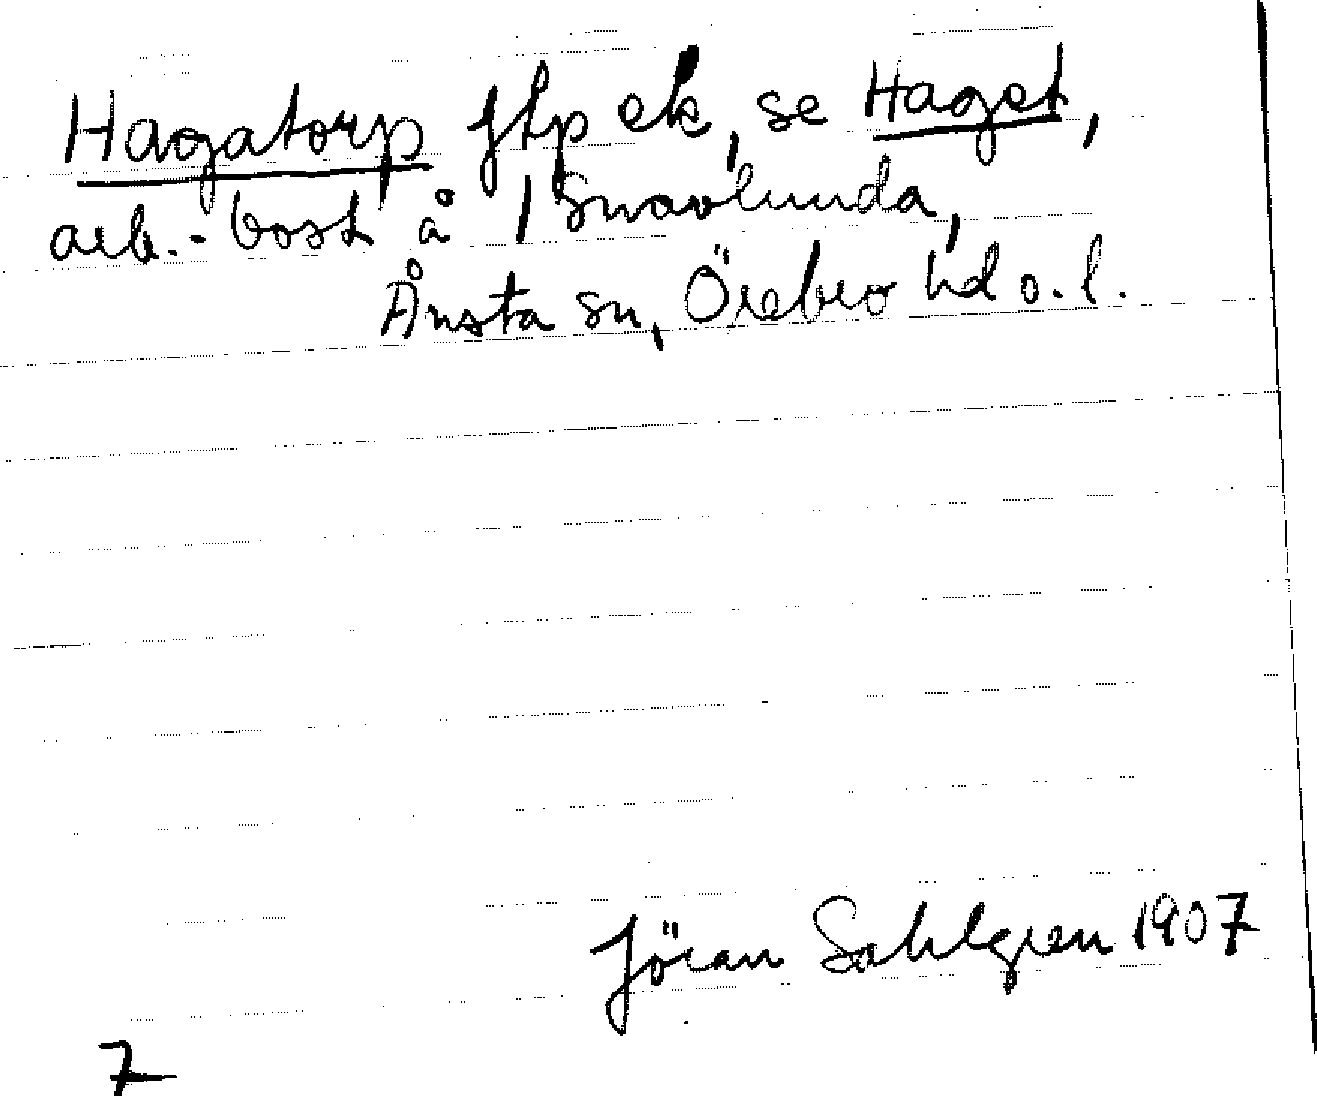 Hagatorp ftp ek, se Haget,
arb.-bost å 1 Snavlunda,
Ånsta sn, Örebro hd o. l.
Jöran Sahlgren 1907
7